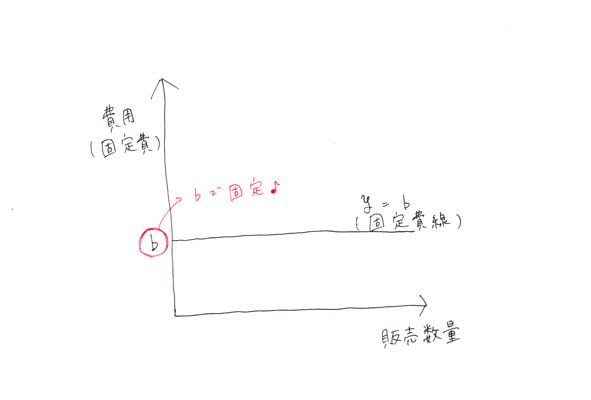 費用
(固定費)
bで固定♪
y = b
(固定費線)
b
販売数量